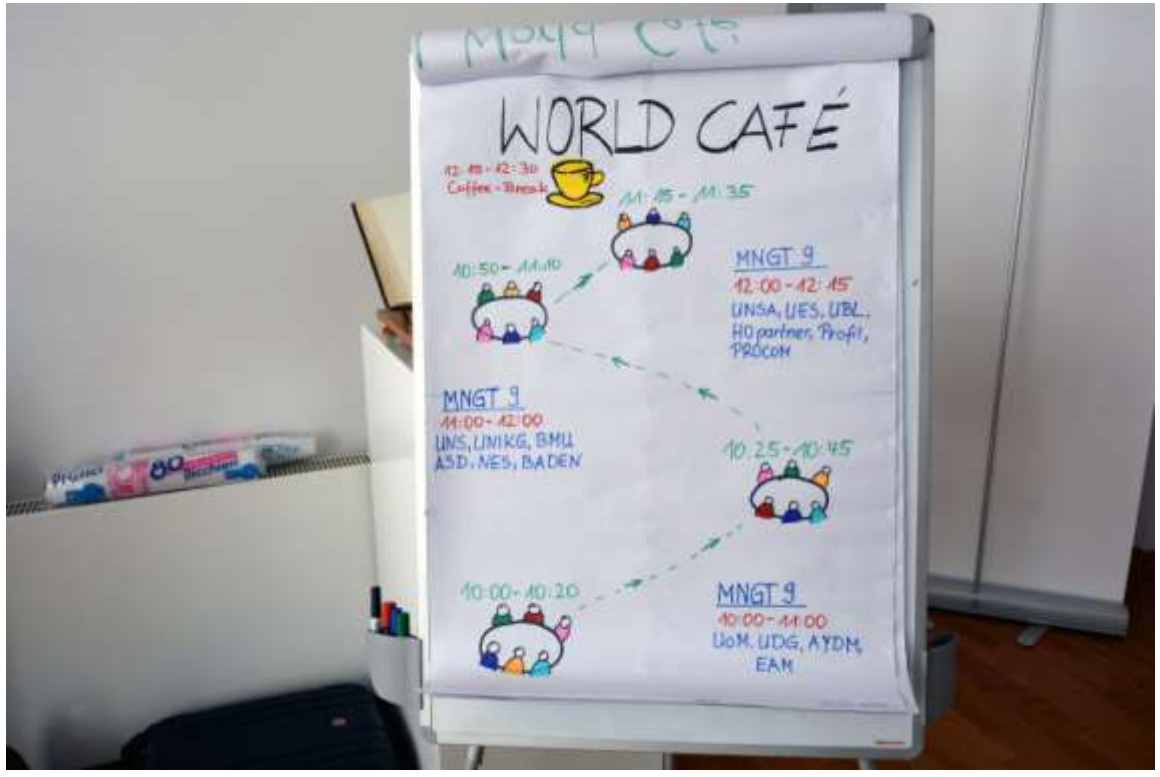 World Café
WORLD CAFÉ
12:15-12:30
Coffee-Break
11:15-11:35
10:50-11:10
MNGT 9
12:00-12:15
UNSA, UES, UBL,
HO partner, Profit,
PROCOM
MNGT 9
11:00-12:00
UNS, UNIKG, BMU
ASD. NES, BADEN
10.25-10:45
10:00-10:20
MNGT 9
10:00-11:00
UoM. UDG, AYDM,
EAM
80